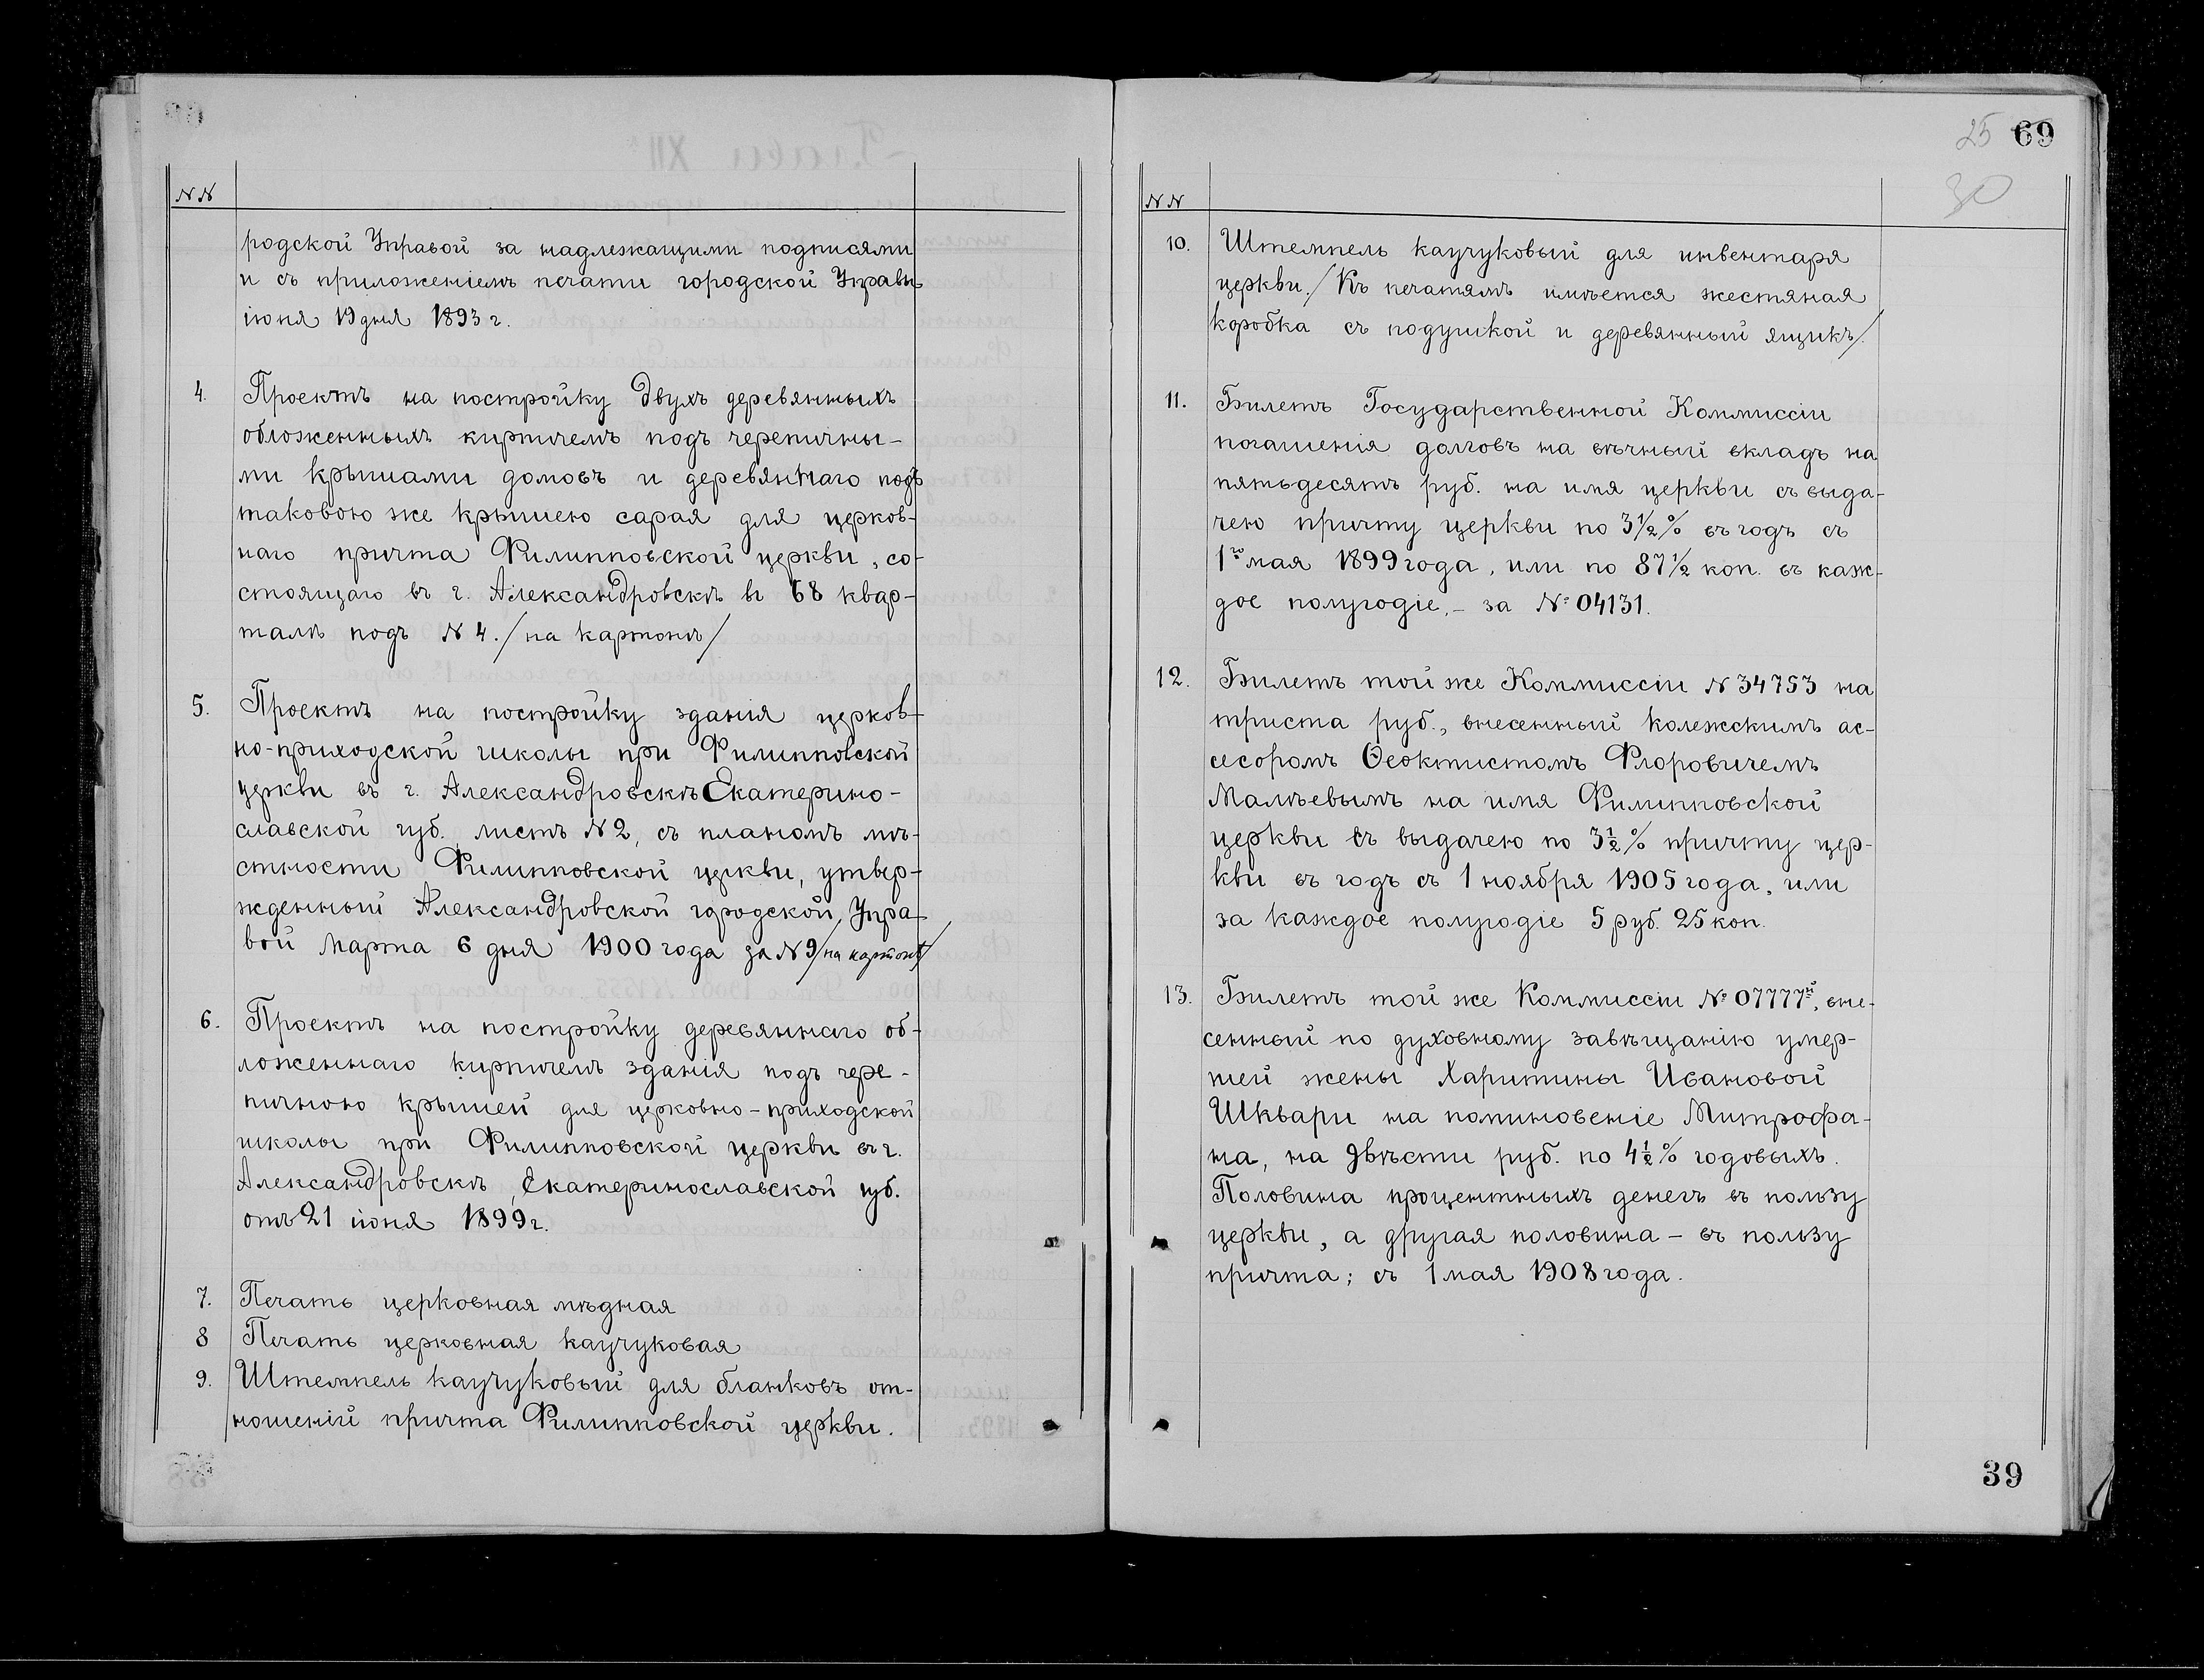 NN
родской Управой за надлежащими подписями
и съ приложеніемъ печати городской Управы
іюня 19 дня 1893 г.
4. Проектъ на постройку двухъ деревянныхъ
обложенныхъ кирпичемъ подъ черепичны-
ми крышами домовъ и деревяннаго подъ
таковою же крышею сарая для церков-
наго причта Филипповской церкви, со-
стоящаго въ г. Александровскѣ въ 68 квар-
талѣ подъ N 4. /на картонѣ/
5. Проектъ на постройку зданія церков-
но-приходской школы при Филипповской
церкви въ г. Александровскѣ Екатерино-
славской губ. листъ N 2, съ планомъ мѣ-
стности Филипповской церкви, утвер-
жденный Александровской городской Упра-
вой Марта 6 дня 1900 года за N 9 /на картонѣ/
6. Проектъ на постройку деревяннаго об-
ложеннаго кирпичемъ зданія подъ чере-
пичною крышей для церковно-приходской
школы при Филипповской церкви въ г.
Александровскѣ, Екатеринославской губ.
отъ 21 іюня 1899 г.
7. Печать церковная мѣдная
8 Печать церковная каучуковая
9. Штемпель каучуковый для бланковъ от-
ношеній причта Филипповской церкви.
25 69
30
NN
10. Штемпель каучуковый для инвентаря
церкви. /Къ печатямъ имѣется жестяная
коробка съ подушкой и деревянный ящикъ/.
11. Билетъ Государственной Коммиссіи
погашенія долговъ на вѣчный вкладъ на
пятьдесятъ руб. на имя церкви съ выда-
чею причту церкви по 3½% въ годъ съ
1го мая 1899 года, или по 87½ коп. въ каж-
дое полугодіе, – за № 04131.
12. Билетъ той же Коммиссіи N 34753 на
триста руб., внесенный колежскимъ ас-
сесоромъ Ѳеоктистомъ Флоровичемъ
Малѣевымъ на имя Филипповской
церкви съ выдачею по 3½% причту цер-
кви въ годъ съ 1 ноября 1905 года, или
за каждое полугодіе 5 руб. 25 коп.
13. Билетъ той же Коммиссіи № 07777й, вне-
сенный по духовному завѣщанію умер-
шей жены Харитины Ивановой
Шквари на поминовеніе Митрофа-
на, на двѣсти руб. по 4½% годовыхъ.
Половина процентныхъ денегъ въ пользу
церкви, а другая половина – въ пользу
причта; съ 1 мая 1908 года.
39